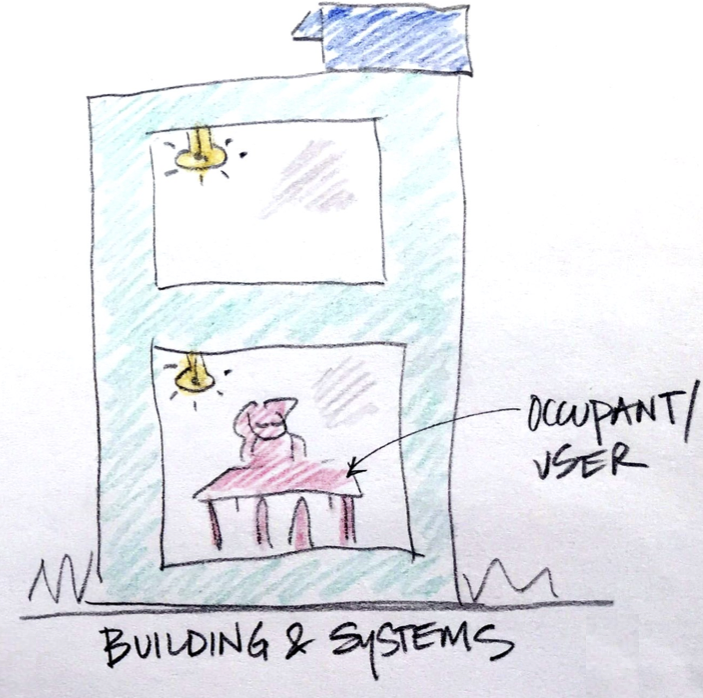 OCCUPANT/
USER
BUILDING & SYSTEMS